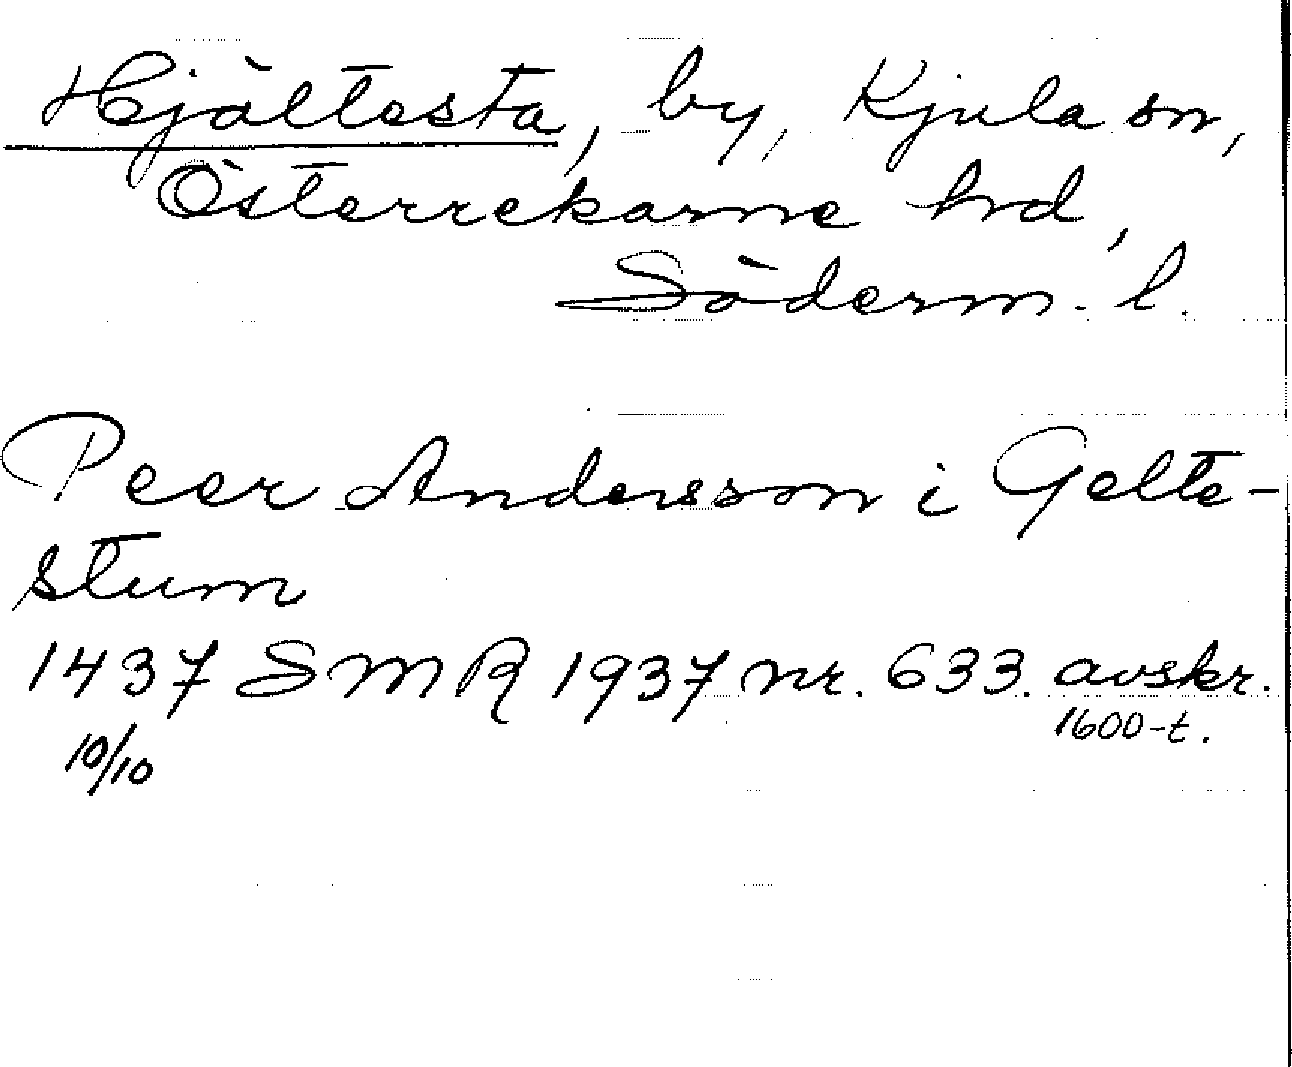 Hjältesta, by, Kjula sn,
Österrekarne hrd,
Söderm. l.
Peer Andersson i Gelte-
stum
1437 SMR 1937 nr. 633. avskr.
10/10 1600-t.